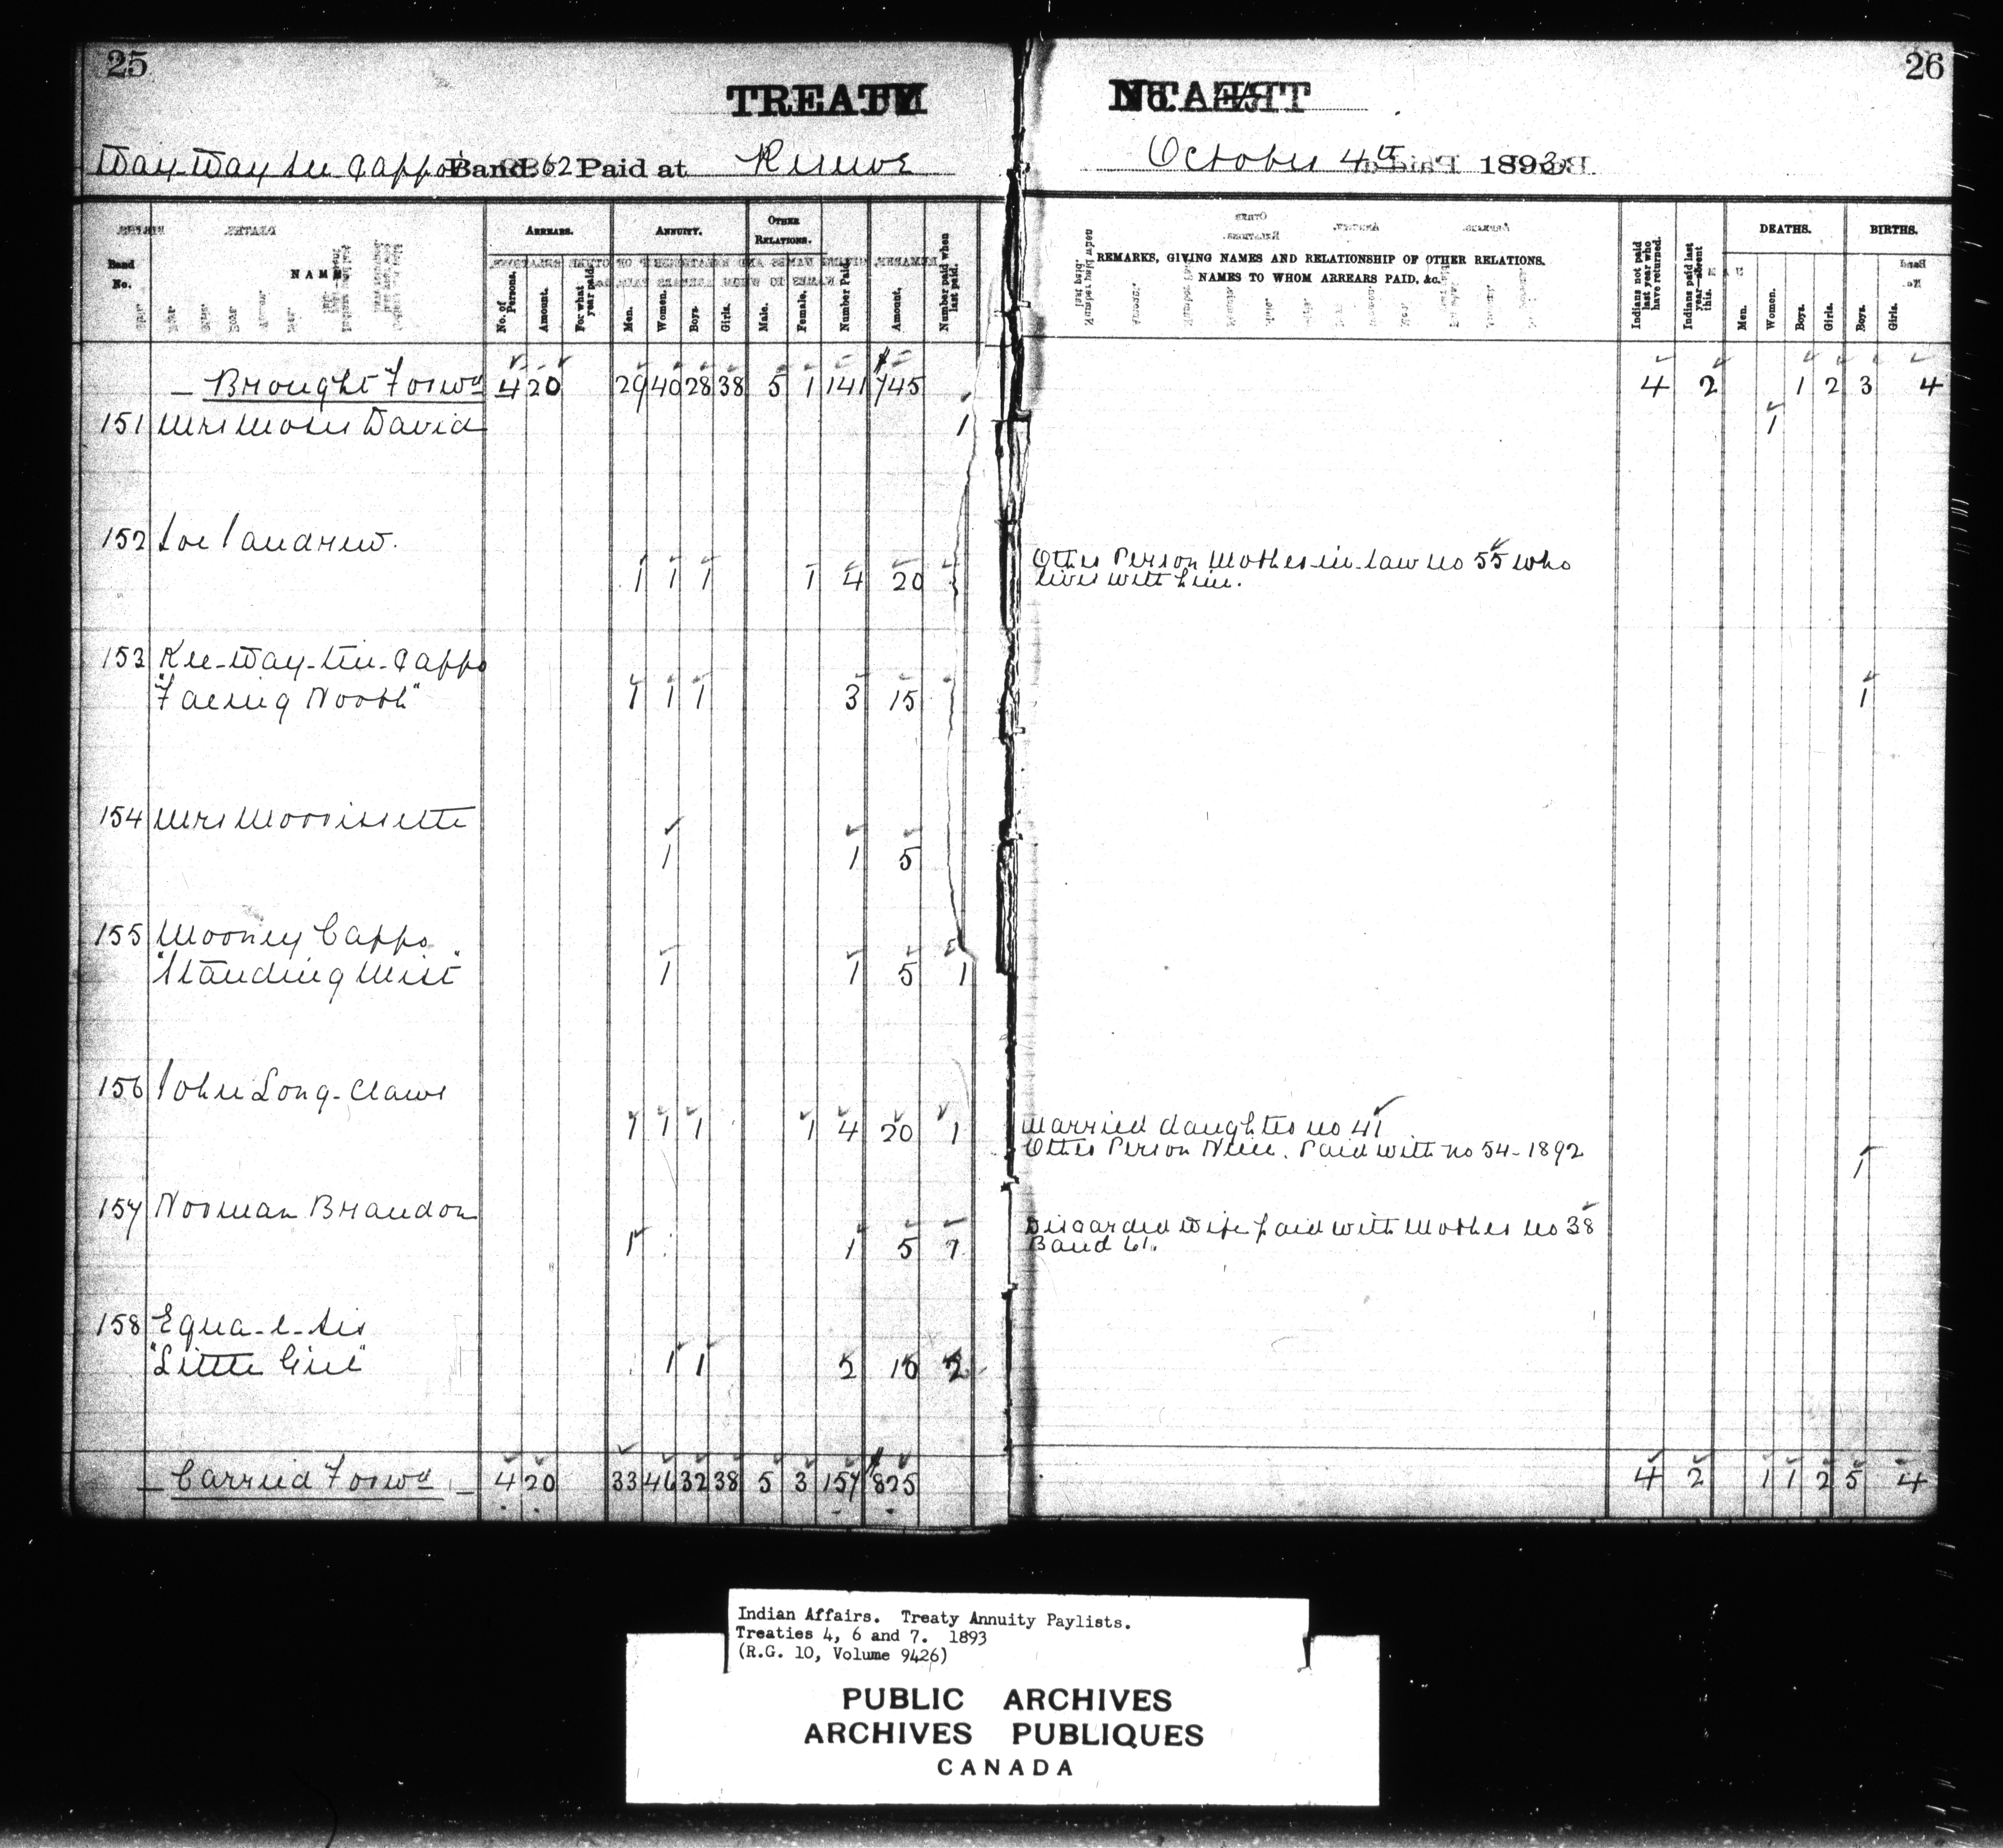 25
26
TREATY
No. 4
Way-Way-see-Cappo Band 62 Paid at Reserve
October 4th 1893
Band No.
NAME
ARREARS.
No. of Persons.
Amount.
For what year paid.
ANNUITY.
Men.
Women.
Boys.
Girls.
OTHER RELATIONS.
Male.
Female.
Number Paid.
Amount.
Number paid when last paid.
REMARKS, GIVING NAMES AND RELATIONSHIP OF OTHER RELATIONS.
NAMES TO WHOM ARREARS PAID, &c.
Indians not paid last year who have returned.
Indians paid last year—absent this.
DEATHS.
Men.
Women.
Boys.
Girls.
BIRTHS.
Boys.
Girls.
Brought Forwd 4 20 29 40 28 38 5 1 141 $745 4 2 1 2 3 4
151 Mrs Moses David 1 1
152 Joe Jandrew.
1 1 1 1 4 20
Other Person Mother-in-law no 55 who
lives with him.
153 Kee-Way-tin-Cappo
"Facing North" 1 1 1 3 15 1
154 Mrs Morrissette
1 1 5
155 Mooney Cappo
"Standing Mist" 1 1 5 1
156 John Long-Claws
1 1 1 1 4 20 1
Married daughter no 41
Other Person Niece. Paid with no 54-1892
1
157 Norman Brandon
1 1 5
Discarded wife paid with Mother no 38
Band 61.
158 Equa-e-sis
"Little Girl" 1 1 2 10 2
Carried Forwd 4 20 33 46 32 38 5 3 157 $825 4 2 1 1 2 5 4
Indian Affairs. Treaty Annuity Paylists.
Treaties 4, 6 and 7. 1893
(R.G. 10, Volume 9426)
PUBLIC ARCHIVES
ARCHIVES PUBLIQUES
CANADA